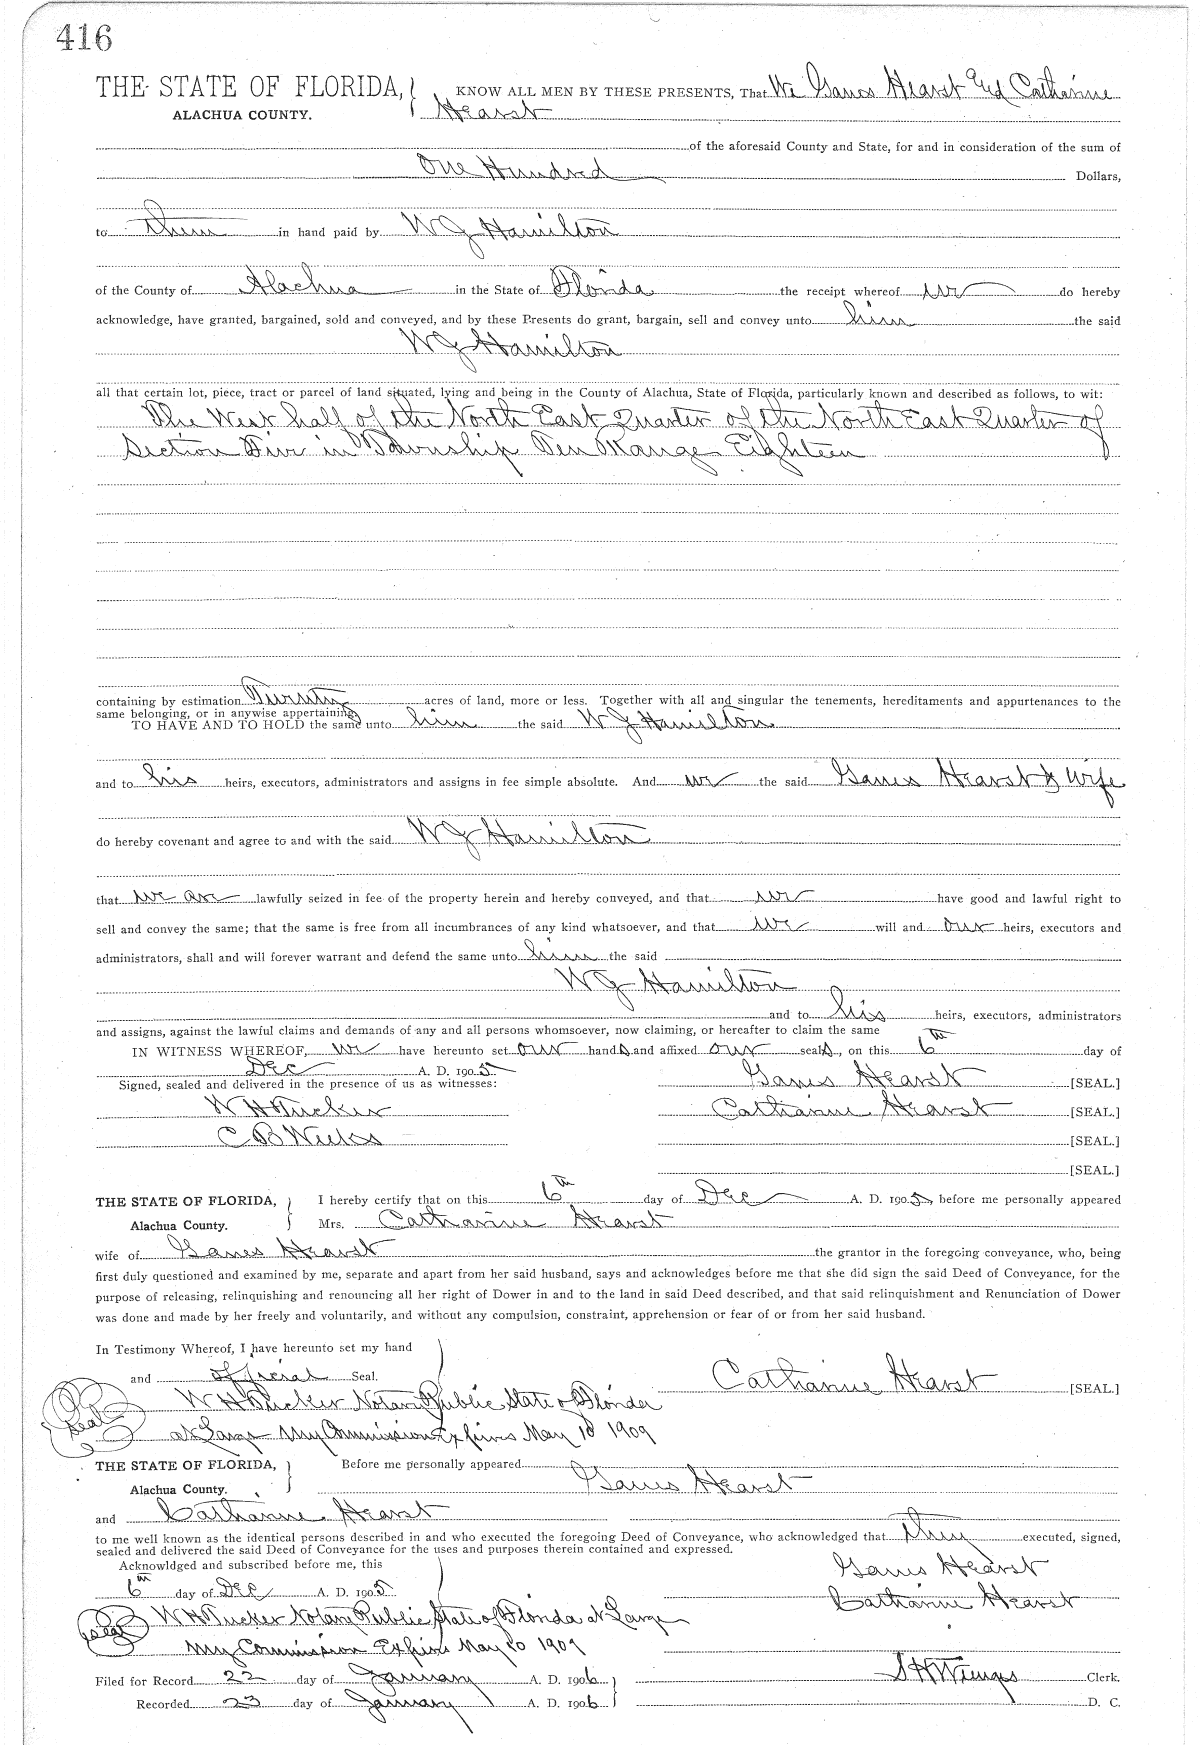 416
THE STATE OF FLORIDA, KNOW ALL MEN BY THESE PRESENTS, That We Ganes Hearst and Catharine
ALACHUA COUNTY. Hearst
of the aforesaid County and State, for and in consideration of the sum of
One Hundred Dollars,
to them in hand paid by W J Hamilton
of the County of Alachua in the State of Florida the receipt whereof we do hereby
acknowledge, have granted, bargained, sold and conveyed, and by these Presents do grant, bargain, sell and convey unto him the said
W J Hamilton
all that certain lot, piece, tract or parcel of land situated, lying and being in the County of Alachua, State of Florida, particularly known and described as follows, to wit:
The West half of the North East Quarter of the North East Quarter of
Section Five in Township Ten Range Eighteen
containing by estimation Twenty acres of land, more or less. Together with all and singular the tenements, hereditaments and appurtenances to the
same belonging, or in anywise appertaining
TO HAVE AND TO HOLD the same unto him the said W J Hamilton
and to his heirs, executors, administrators and assigns in fee simple absolute. And we the said Ganes Hearst & Wife
do hereby covenant and agree to and with the said W J Hamilton
that we are lawfully seized in fee of the property herein and hereby conveyed, and that we have good and lawful right to
sell and convey the same; that the same is free from all incumbrances of any kind whatsoever, and that we will and our heirs, executors and
administrators, shall and will forever warrant and defend the same unto him the said
W J Hamilton
and to his heirs, executors, administrators
and assigns, against the lawful claims and demands of any and all persons whomsoever, now claiming, or hereafter to claim the same
IN WITNESS WHEREOF, we have hereunto set our hands and affixed our seals, on this 6th day of
Dec A. D. 1905
Signed, sealed and delivered in the presence of us as witnesses: Ganes Hearst [SEAL.]
W H Tucker Catharine Hearst [SEAL.]
C B Weeks [SEAL.]
[SEAL.]
THE STATE OF FLORIDA, I hereby certify that on this 6th day of Dec A. D. 1905, before me personally appeared
Alachua County. Mrs. Catharine Hearst
wife of Ganes Hearst the grantor in the foregoing conveyance, who, being
first duly questioned and examined by me, separate and apart from her said husband, says and acknowledges before me that she did sign the said Deed of Conveyance, for the
purpose of releasing, relinquishing and renouncing all her right of Dower in and to the land in said Deed described, and that said relinquishment and Renunciation of Dower
was done and made by her freely and voluntarily, and without any compulsion, constraint, apprehension or fear of or from her said husband.
In Testimony Whereof, I have hereunto set my hand
and official Seal. Catharine Hearst [SEAL.]
Seal W H Tucker Notary Public State of Florida
at Large My Commission Expires May 10 1909
THE STATE OF FLORIDA, Before me personally appeared
Alachua County. Ganes Hearst
and Catharine Hearst
to me well known as the identical persons described in and who executed the foregoing Deed of Conveyance, who acknowledged that they executed, signed,
sealed and delivered the said Deed of Conveyance for the uses and purposes therein contained and expressed.
Acknowldged and subscribed before me, this Ganes Hearst
6th day of Dec A. D. 1905 Catharine Hearst
Seal W H Tucker Notary Public State of Florida at Large
My Commission Expires May 10 1909
Filed for Record 22 day of January A. D. 1906 S H Wienges Clerk.
Recorded 23 day of January A. D. 1906 D. C.